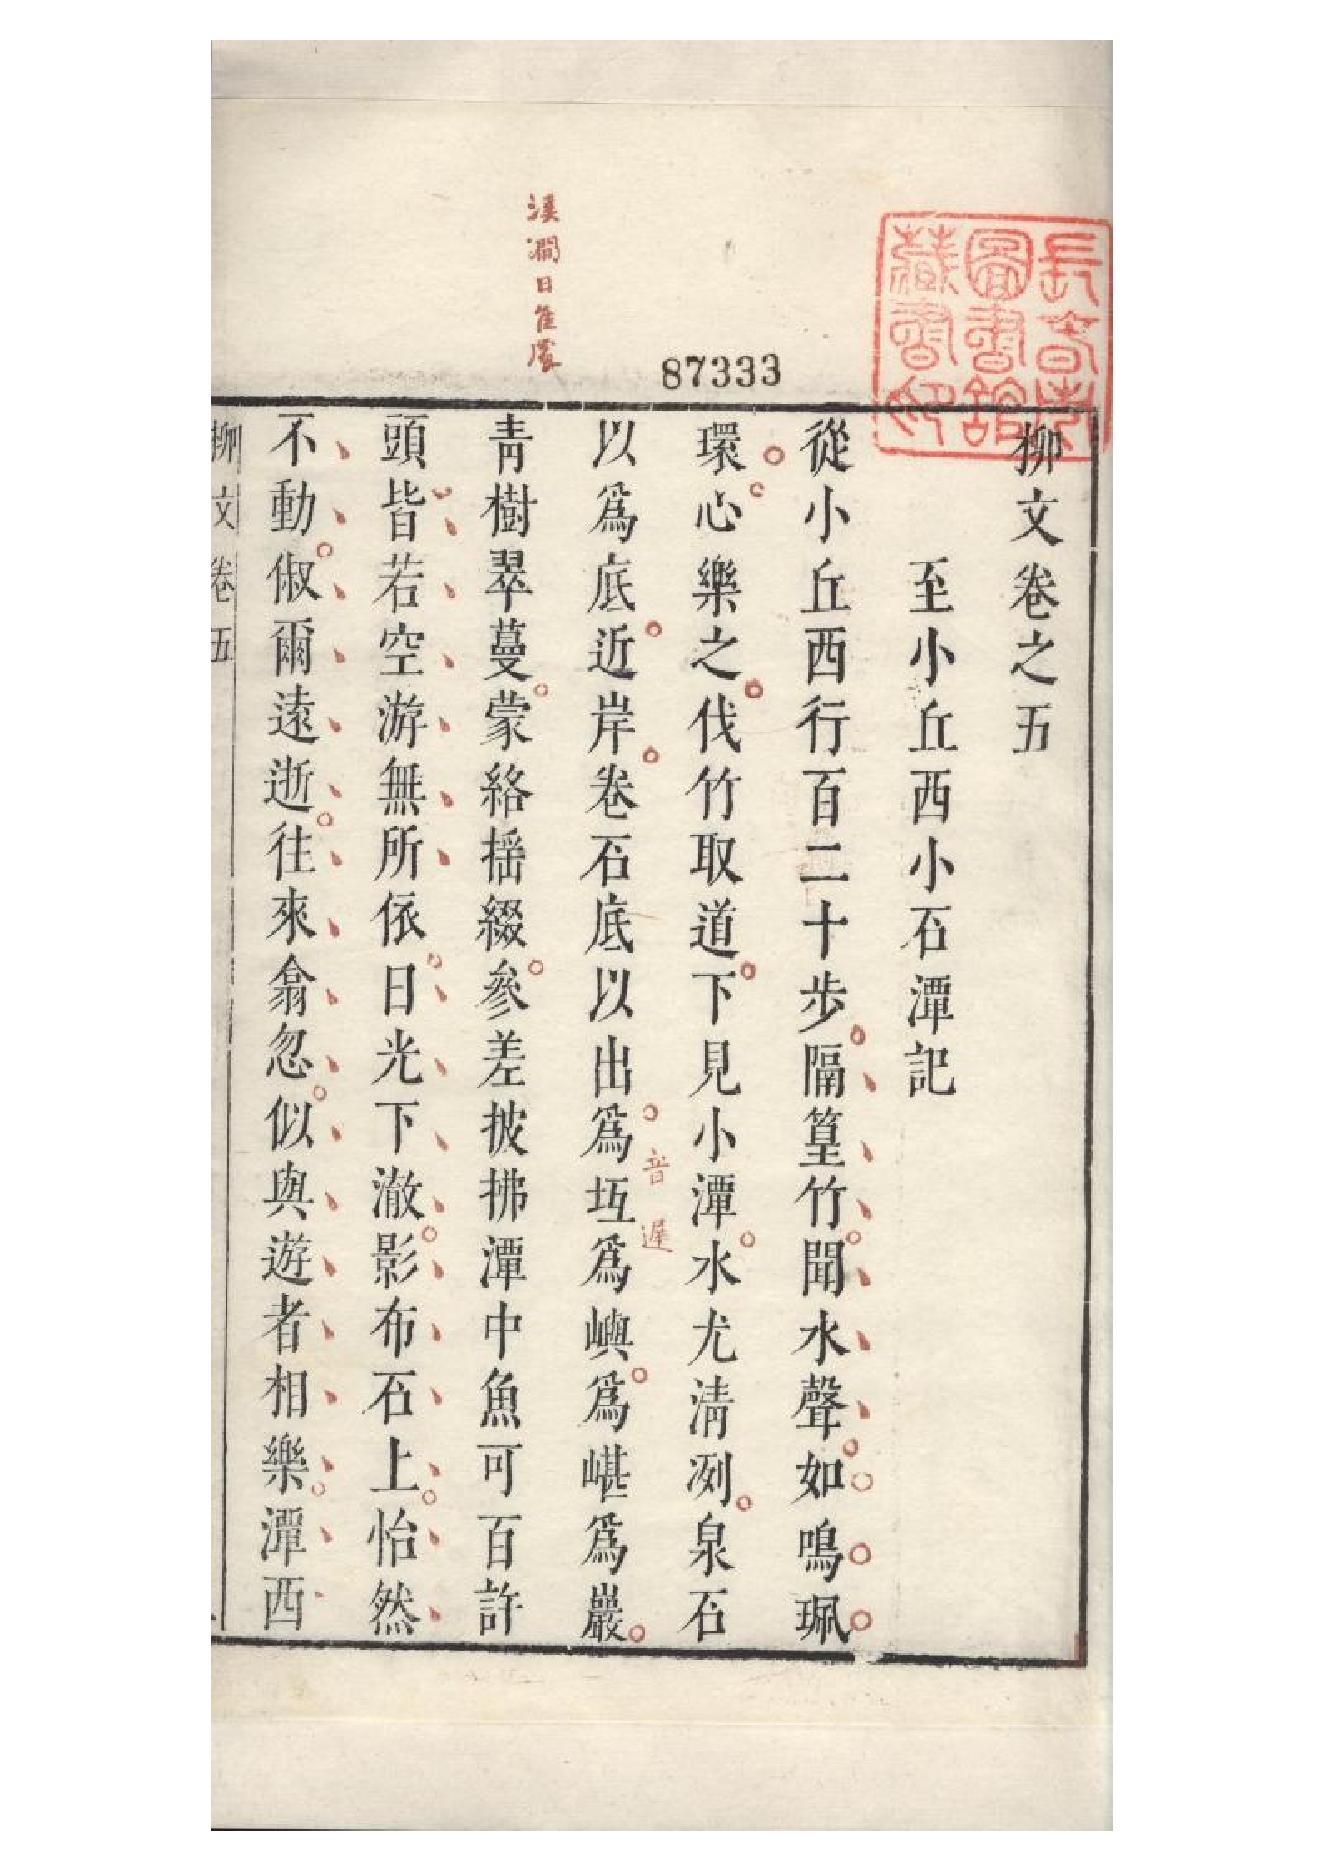 長春市
圖書館
藏書印
87333
溪澗日
柳文卷之五
至小丘西小石潭記
從小丘西行百二十步隔篁竹聞水聲如鳴珮
環心樂之伐竹取道下見小潭水尤淸冽泉石
以爲底近岸卷石底以出爲坻爲嶼爲嵁爲巖
音遲
靑樹翠蔓蒙絡揺綴參差披拂潭中魚可百許
頭皆若空游無所依日光下澈影布石上怡然
不動俶爾遠逝往來翕忽似與遊者相樂潭西
柳文卷五